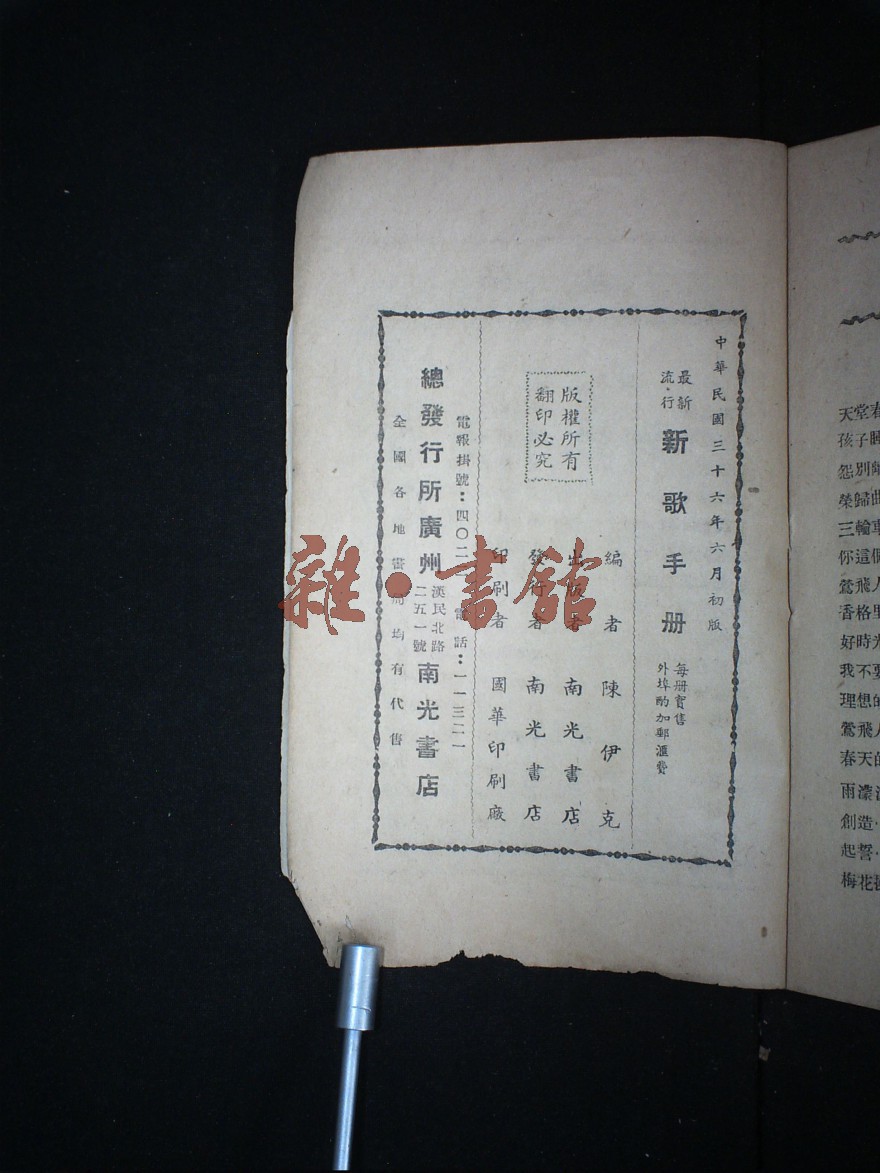 中華民國三十六年六月初版
最新
流行
新歌手册
每册實售
外埠酌加郵滙費
版權所有
翻印必究
編者 陳伊克
出版者 南光書店
發行者 南光書店
印刷者 國華印刷廠
電報掛號：四〇二 電話：一一三二一
總發行所廣州
漢民北路
二五一號
南光書店
全國各地書局均有代售
雜·書館
天堂春
孩子睡
怨別離
榮歸曲
三輪車
你這個
鶯飛人
香格里
好時光
我不要
理想的
鶯飛人
春天的
雨濛
創造
起誓
梅花